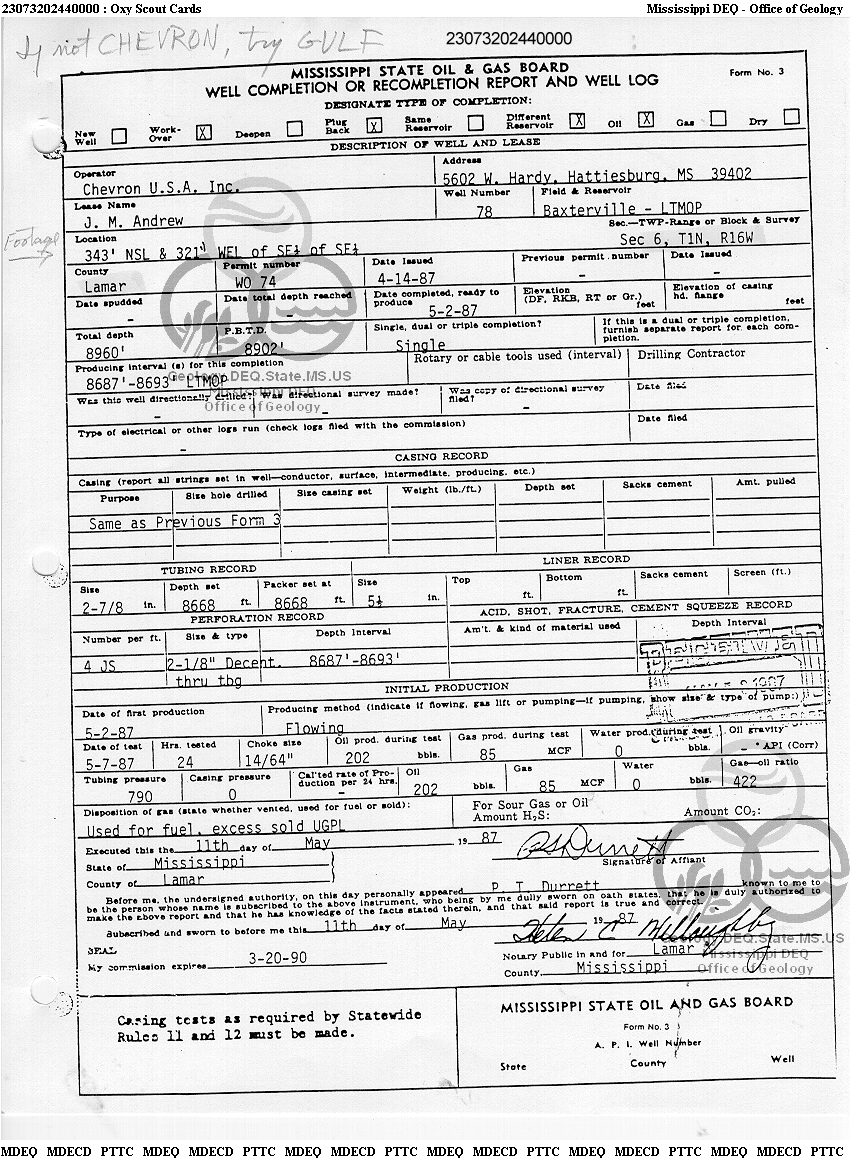 23073202440000 : Oxy Scout Cards Mississippi DEQ - Office of Geology
If not CHEVRON, try GULF 23073202440000
MISSISSIPPI STATE OIL & GAS BOARD Form No. 3
WELL COMPLETION OR RECOMPLETION REPORT AND WELL LOG
DESIGNATE TYPE OF COMPLETION:
New Well Work-Over X Deepen Plug Back X Same Reservoir Different Reservoir X Oil X Gas Dry
DESCRIPTION OF WELL AND LEASE
Operator Address
Chevron U.S.A. Inc. 5602 W. Hardy, Hattiesburg, MS 39402
Lease Name Well Number Field & Reservoir
J. M. Andrew 78 Baxterville - LTMOP
Footage
Location Sec.—TWP-Range or Block & Survey
343' NSL & 321' WEL of SE¼ of SE¼ Sec 6, T1N, R16W
County Permit number Date Issued Previous permit number Date Issued
Lamar WO 74 4-14-87 - -
Date spudded Date total depth reached Date completed, ready to produce Elevation (DF, RKB, RT or Gr.) feet Elevation of casing hd. flange feet
- - 5-2-87 - -
Total depth P.B.T.D. Single, dual or triple completion? If this is a dual or triple completion, furnish separate report for each completion.
8960' 8902' Single
Producing interval (s) for this completion Rotary or cable tools used (interval) Drilling Contractor
8687'-8693' LTMOP
Geology.DEQ.State.MS.US
Mississippi DEQ
Office of Geology
Was this well directionally drilled? Was directional survey made? Was copy of directional survey filed? Date filed
- - -
Type of electrical or other logs run (check logs filed with the commission) Date filed
-
CASING RECORD
Casing (report all strings set in well—conductor, surface, intermediate, producing, etc.)
Purpose Size hole drilled Size casing set Weight (lb./ft.) Depth set Sacks cement Amt. pulled
Same as Previous Form 3
TUBING RECORD LINER RECORD
Size Depth set Packer set at Size Top Bottom Sacks cement Screen (ft.)
2-7/8 in. 8668 ft. 8668 ft. 5½ in. ft. ft.
PERFORATION RECORD ACID, SHOT, FRACTURE, CEMENT SQUEEZE RECORD
Number per ft. Size & type Depth Interval Am't. & kind of material used Depth Interval
4 JS 2-1/8" Decent. 8687'-8693'
thru tbg
INITIAL PRODUCTION
Date of first production Producing method (indicate if flowing, gas lift or pumping—if pumping, show size & type of pump:)
5-2-87 Flowing
Date of test Hrs. tested Choke size Oil prod. during test Gas prod. during test Water prod. during test Oil gravity
5-7-87 24 14/64" 202 bbls. 85 MCF 0 bbls. - ° API (Corr)
Tubing pressure Casing pressure Cal'ted rate of Production per 24 hrs. Oil Gas Water Gas—oil ratio
790 0 - 202 bbls. 85 MCF 0 bbls. 422
Disposition of gas (state whether vented, used for fuel or sold): For Sour Gas or Oil
Amount H₂S: Amount CO₂:
Used for fuel, excess sold UGPL
Executed this the 11th day of May 19 87
Signature of Affiant
State of Mississippi
County of Lamar
Before me, the undersigned authority, on this day personally appeared P. T. Durrett known to me to
be the person whose name is subscribed to the above instrument, who being by me dully sworn on oath states, that he is duly authorized to
make the above report and that he has knowledge of the facts stated therein, and that said report is true and correct.
Subscribed and sworn to before me this 11th day of May 19 87
Helen C Willoughby
Geology.DEQ.State.MS.US
SEAL Notary Public in and for Lamar
Mississippi DEQ
My commission expires 3-20-90 County Mississippi
Office of Geology
Casing tests as required by Statewide
Rules 11 and 12 must be made.
MISSISSIPPI STATE OIL AND GAS BOARD
Form No. 3
A. P. I. Well Number
State County Well
MDEQ MDECD PTTC MDEQ MDECD PTTC MDEQ MDECD PTTC MDEQ MDECD PTTC MDEQ MDECD PTTC MDEQ MDECD PTTC